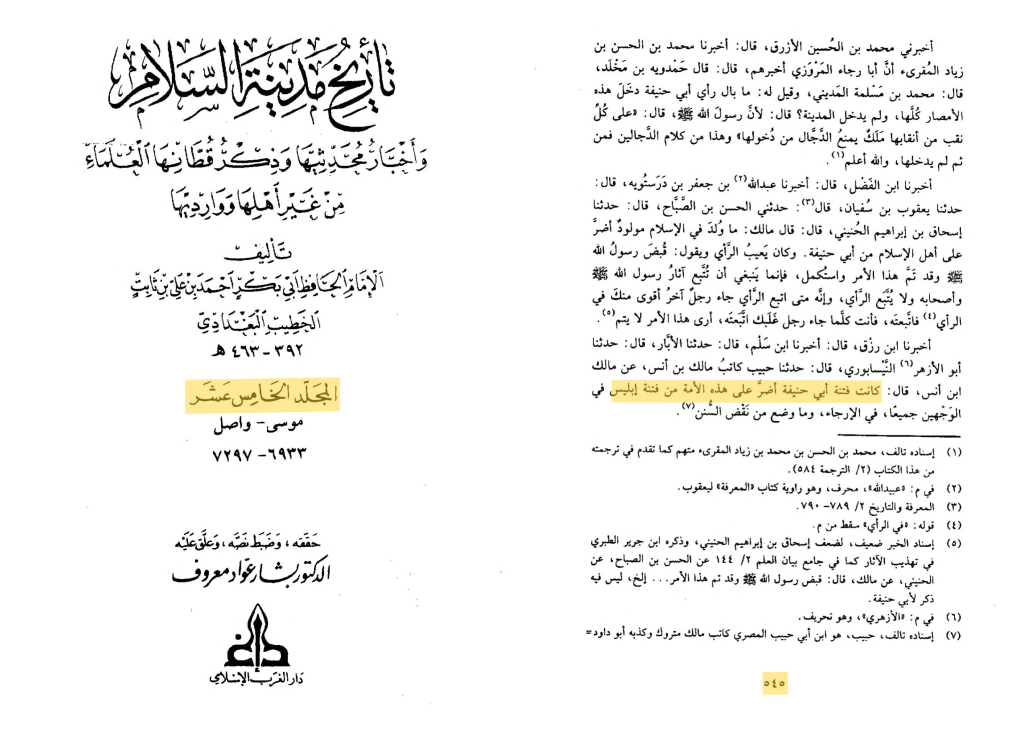 تأريخ مدينة السلام
وأخبار محدثيها وذكر قطانها العلماء
من غير أهلها ووارديها
تأليف
الإمام الحافظ أبي بكر أحمد بن علي بن ثابت
الخطيب البغدادي
٣٩٢-٤٦٣ هـ
المجلد الخامس عشر
موسى - واصل
٦٩٣٣-٧٢٩٧
حققه، وضبط نصه، وعلق عليه
الدكتور بشار عواد معروف
دار الغرب الإسلامي
أخبرني محمد بن الحُسين الأزرق، قال: أخبرنا محمد بن الحسن بن
زياد المُقرىء أنَّ أبا رجاء المَرْوَزي أخبرهم، قال: قال حَمْدويه بن مَخْلَد،
قال: محمد بن مَسْلمة المَديني، وقيل له: ما بال رأي أبي حنيفة دخَلَ هذه
الأمصار كُلَّها، ولم يدخل المدينة؟ قال: لأنَّ رسولَ الله ﷺ، قال: «على كُلِّ
نقب من أنقابها مَلَكٌ يمنعُ الدَّجَّال من دُخولها» وهذا من كلام الدجالين فمن
ثم لم يدخلها، والله أعلم(١).
أخبرنا ابن الفَضْل، قال: أخبرنا عبدالله(٢) بن جعفر بن دَرَستُويه، قال:
حدثنا يعقوب بن سُفيان، قال(٣): حدثني الحسن بن الصَّبَّاح، قال: حدثنا
إسحاق بن إبراهيم الحُنيني، قال: قال مالك: ما وُلدَ في الإسلام مولودٌ أضرَّ
على أهل الإسلام من أبي حنيفة. وكان يَعيبُ الرَّأي ويقول: قُبضَ رسولُ الله
ﷺ وقد تَمَّ هذا الأمر واستُكمل، فإنما يَنبغي أن تُتَّبع آثارُ رسول الله ﷺ
وأصحابه ولا يُتَّبَع الرَّأي، وإنَّه متى اتبع الرَّأي جاء رجلٌ آخرُ أقوى منكَ في
الرأي(٤) فاتَّبعتَه، فأنت كلَّما جاء رجل غَلَبك اتَّبَعتَه، أرى هذا الأمر لا يتم(٥).
أخبرنا ابن رزق، قال: أخبرنا ابن سَلْم، قال: حدثنا الأبَّار، قال: حدثنا
أبو الأزهر(٦) النَّيْسابوري، قال: حدثنا حبيب كاتبُ مالك بن أنس، عن مالك
ابن أنس، قال: كانت فتنة أبي حنيفة أضرَّ على هذه الأمة من فتنة إبليس في
الوَجْهين جميعًا، في الإرجاء، وما وضع من نَقْض السُّنن(٧).
(١) إسناده تالف، محمد بن الحسن بن محمد بن زياد المقرىء متهم كما تقدم في ترجمته
من هذا الكتاب (٢/ الترجمة ٥٨٤).
(٢) في م: «عبيدالله»، محرف، وهو راوية كتاب «المعرفة» ليعقوب.
(٣) المعرفة والتاريخ ٢/ ٧٨٩-٧٩٠.
(٤) قوله: «في الرأي» سقط من م.
(٥) إسناد الخبر ضعيف، لضعف إسحاق بن إبراهيم الحنيني، وذكره ابن جرير الطبري
في تهذيب الآثار كما في جامع بيان العلم ٢/ ١٤٤ عن الحسن بن الصباح، عن
الحنيني، عن مالك، قال: قبض رسول الله ﷺ وقد تم هذا الأمر... إلخ، ليس فيه
ذكر لأبي حنيفة.
(٦) في م: «الأزهري»، وهو تحريف.
(٧) إسناده تالف، حبيب، هو ابن أبي حبيب المصري كاتب مالك متروك وكذبه أبو داود=
٥٤٥